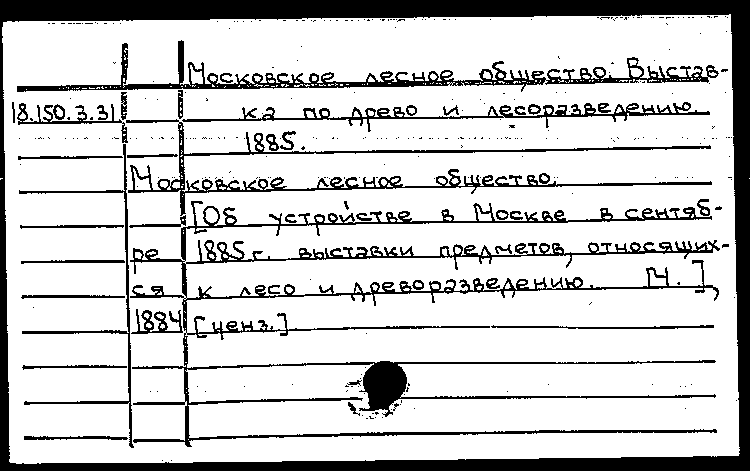 Московское лесное общество. Выстав-
18.150.3.31 ка по древо и лесоразведению.
1885.
Московское лесное общество.
[Об устройстве в Москве в сентяб-
ре 1885 г. выставки предметов, относящих-
ся к лесо и древоразведению. М.],
1884 [ценз.]